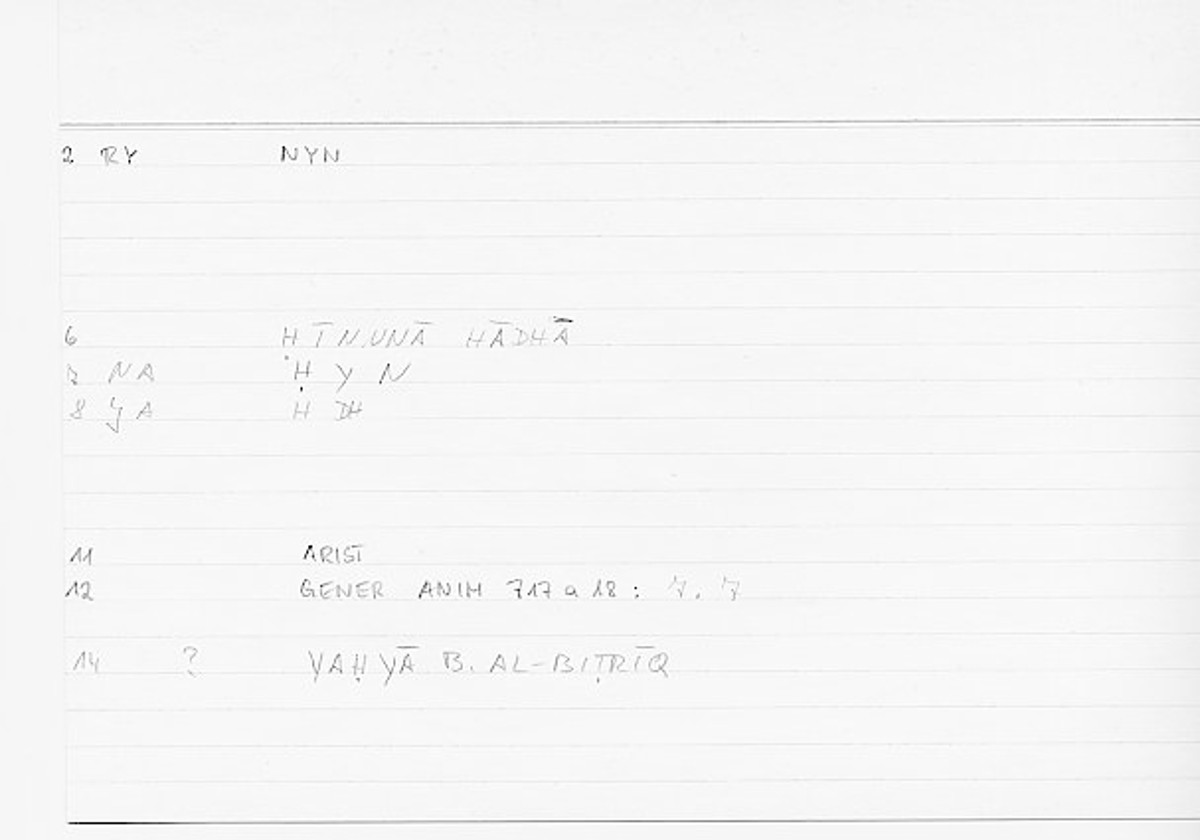 2 RY NYN
6 ḤĪNUNĀ HĀDHĀ
7 NA Ḥ Y N
8 YA H DH
11 ARIST
12 GENER ANIM 717 a 18 : 7. 7
14 ? YAḤYĀ B. AL-BIṬRĪQ